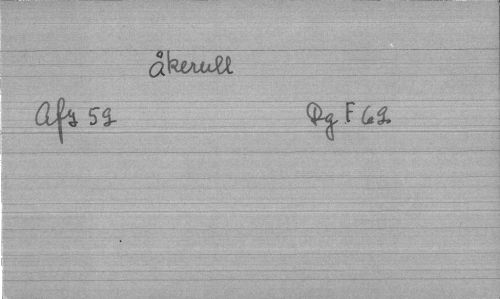 åkerull
Afz 59
Rg F 69